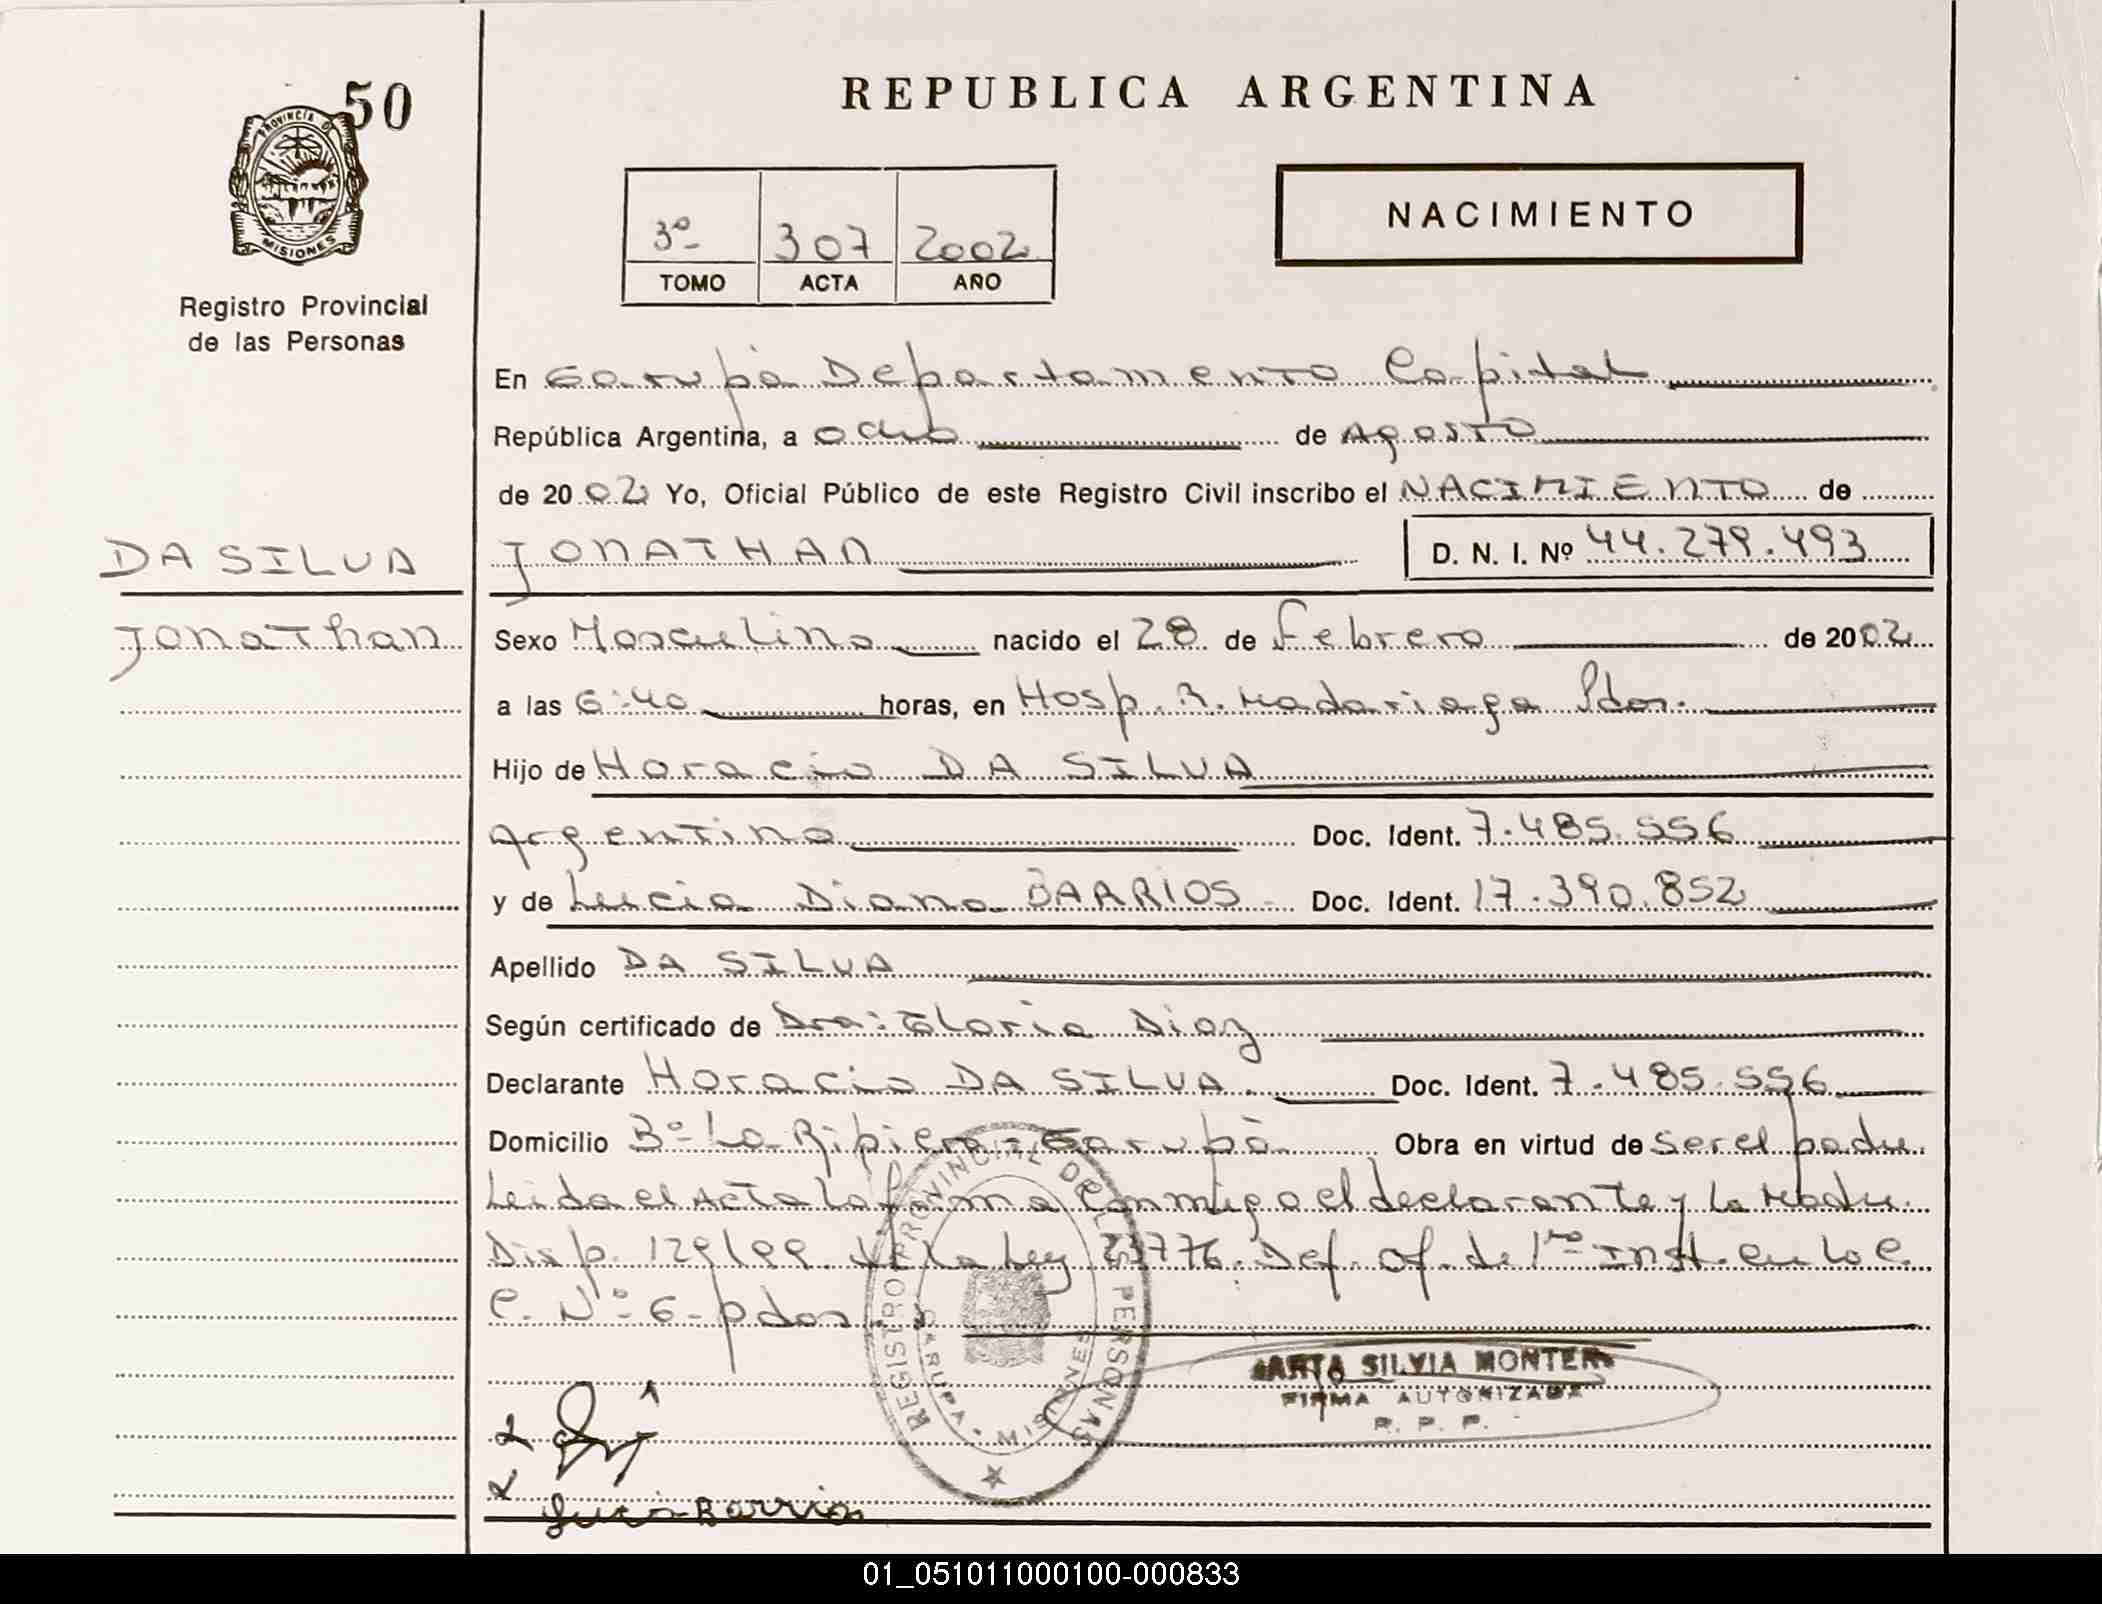 50
PROVINCIA D
MISIONES
Registro Provincial
de las Personas
REPUBLICA ARGENTINA
3º 307 2002
TOMO ACTA AÑO
NACIMIENTO
En Garupá Departamento Capital
República Argentina, a ocho de Agosto
de 2002 Yo, Oficial Público de este Registro Civil inscribo el NACIMIENTO de
DA SILVA
Jonathan
JONATHAN D. N. I. Nº 44.279.493
Sexo Masculino nacido el 28 de Febrero de 2002
a las 6:40 horas, en Hosp. R. Madariaga Pdas.
Hijo de Horacio DA SILVA
Argentino Doc. Ident. 7.485.556
y de Lucia Diana BARRIOS Doc. Ident. 17.390.852
Apellido DA SILVA
Según certificado de Dra: Gloria Diaz
Declarante Horacio DA SILVA. Doc. Ident. 7.485.556
Domicilio Bº La Ripiera - Garupá Obra en virtud de ser el padre.
Leida el Acta La firma Conmigo el declarante y la Madre.
Disp. 129/99 de la Ley 23776. Def. of. de 1ra Inst. en lo C.
C. Nº 6 - pdas.
REGISTRO PROVINCIAL DE LAS PERSONAS
GARUPA • MISIONES
SILVIA MONTER
FIRMA AUTORIZADA
R. P. P.
Lucia Barrios
01_051011000100-000833